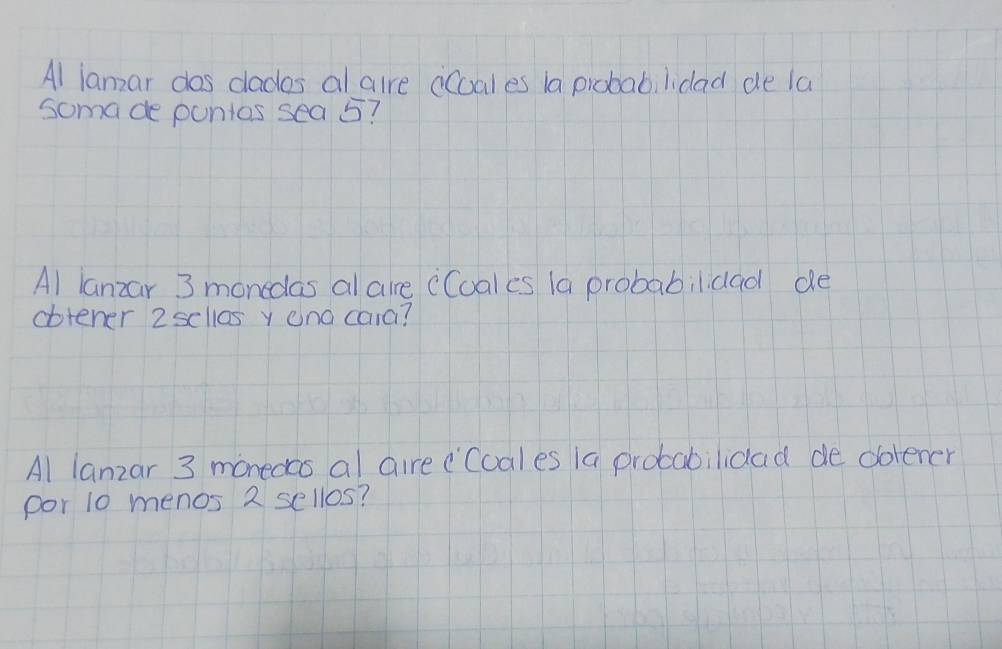 Al lanzar dos dados al aire ¿Cual es la probabilidad de la
suma de puntos sea 5?
Al lanzar 3 monedas al aire ¿Cual es la probabilidad de
obtener 2 sellos y una cara?
Al lanzar 3 monedas al aire ¿Cual es la probabilidad de obtener
por lo menos 2 sellos?